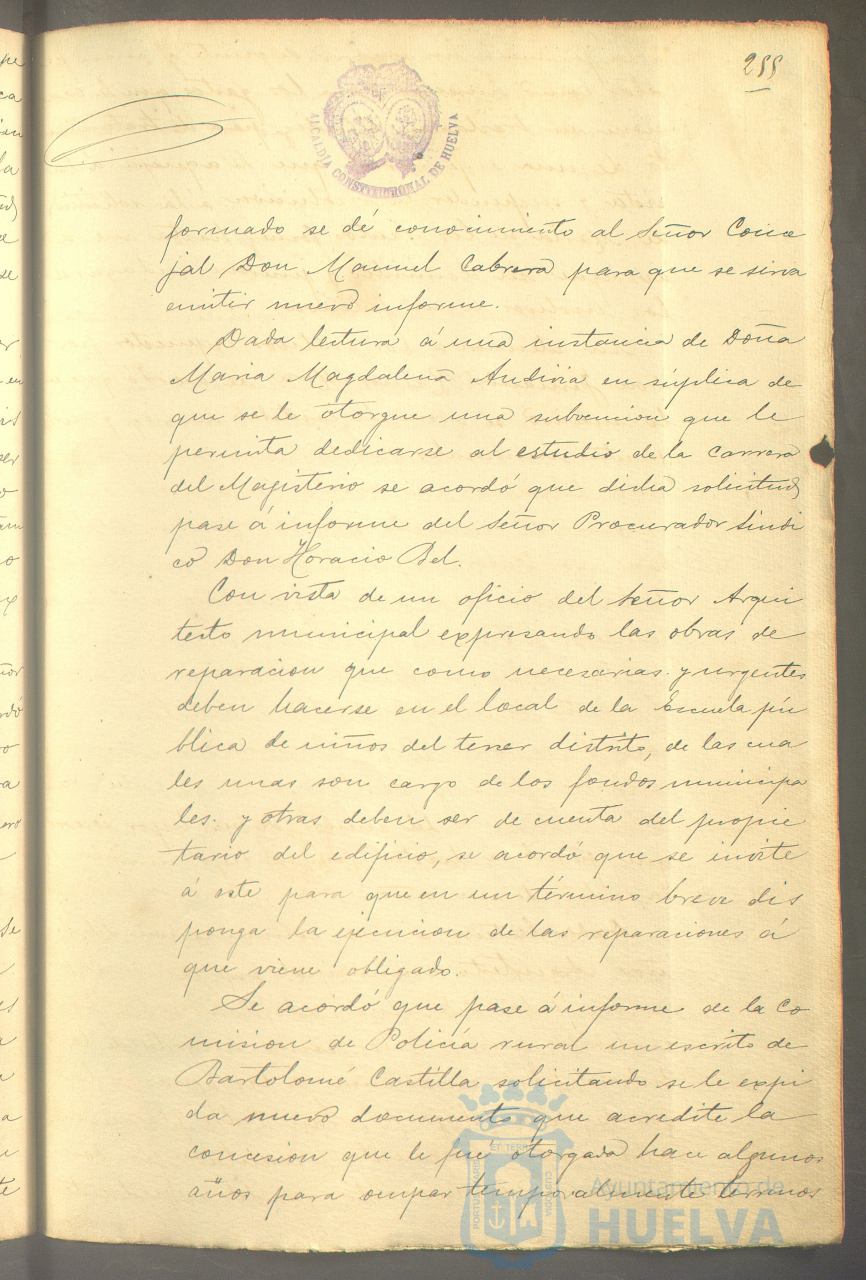 255
ALCALDÍA CONSTITUCIONAL DE HUELVA
formado se dé conocimiento al Señor Conce
jal Don Manuel Cabrera para que se sirva
emitir nuevo informe.
Dada lectura á una instancia de Doña
Maria Magdalena Andivia en súplica de
que se le otorgue una subvencion que le
permita dedicarse al estudio de la carrera
del Magisterio se acordó que dicha solicitud
pase á informe del Señor Procurador Sindi
co Don Horacio Bel.
Con vista de un oficio del Señor Arqui
tecto municipal expresando las obras de
reparacion que como necesarias y urgentes
deben hacerse en el local de la Escuela pú
blica de niños del tercer distrito, de las cua
les unas son cargo de los fondos municipa
les y otras deben ser de cuenta del propie
tario del edificio, se acordó que se invite
á este para que en un término breve dis
ponga la ejecucion de las reparaciones á
que viene obligado.
Se acordó que pase á informe de la Co
mision de Policía rural un escrito de
Bartolomé Castilla solicitando se le expi
da nuevo documento que acredite la
concesion que le fué otorgada hace algunos
años para ocupar temporalmente terrenos
Ayuntamiento de
HUELVA